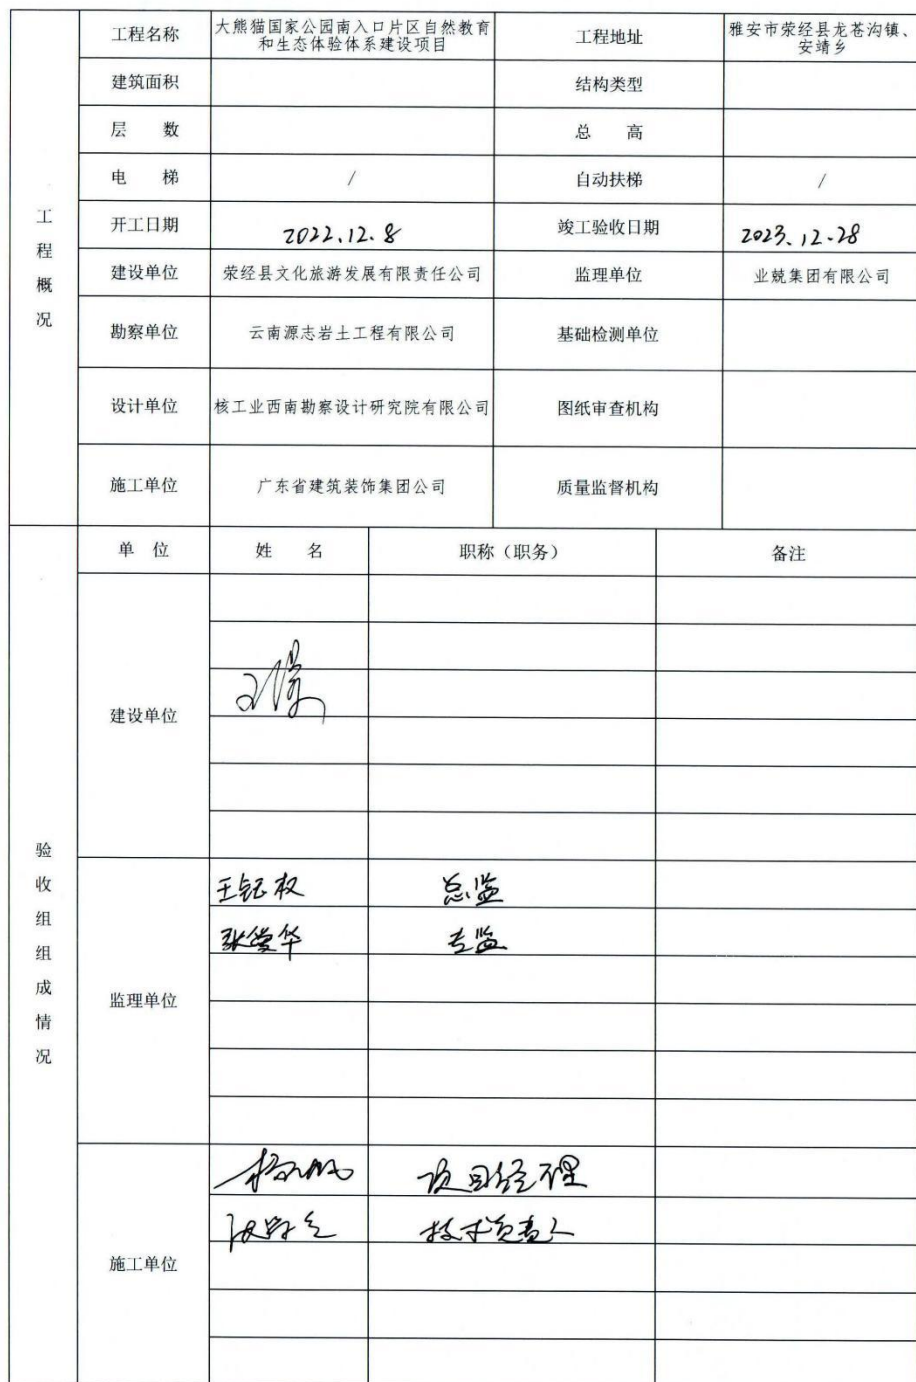 工程概况
工程名称 大熊猫国家公园南入口片区自然教育 工程地址 雅安市荥经县龙苍沟镇、
和生态体验体系建设项目 安靖乡
建筑面积 结构类型
层 数 总 高
电 梯 / 自动扶梯 /
开工日期 2022.12.8 竣工验收日期 2023.12.28
建设单位 荥经县文化旅游发展有限责任公司 监理单位 业兢集团有限公司
勘察单位 云南源志岩土工程有限公司 基础检测单位
设计单位 核工业西南勘察设计研究院有限公司 图纸审查机构
施工单位 广东省建筑装饰集团公司 质量监督机构
验收组组成情况
单 位 姓 名 职称（职务） 备注
建设单位
监理单位
王钰权 总监
专监
施工单位
项目经理
技术负责人